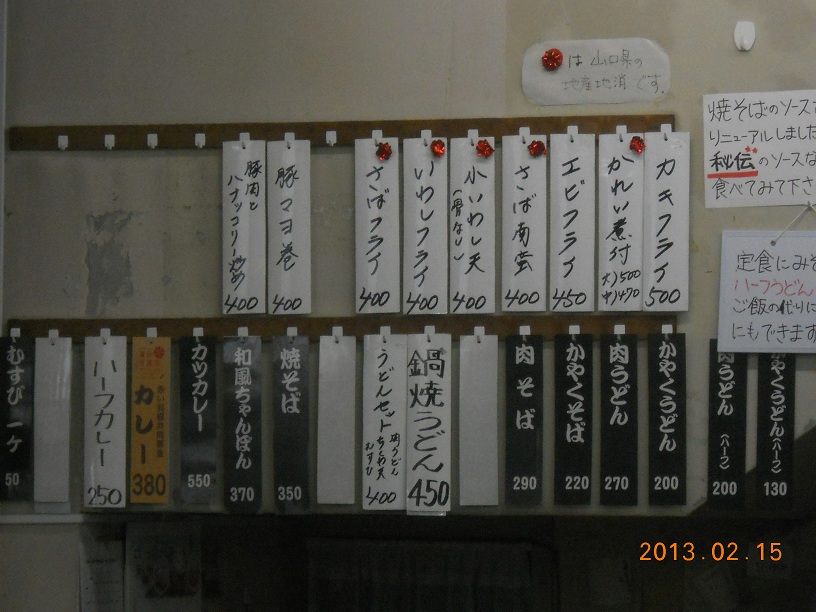 は 山口県の
地産地消です。
焼そばのソース
リニューアルしました
秘伝のソースな
食べてみて下さ
定食にみそ
ハーフうどん
ご飯の代りに
にもできます
カキフライ 500
かれい煮付 大)500 中)470
エビフライ 450
さば南蛮 400
小いわし天 (骨なし) 400
いわしフライ 400
さばフライ 400
豚マヨ巻 400
豚肉とハナッコリー炒め 400
かやくうどん(ハーフ) 130
肉うどん(ハーフ) 200
かやくうどん 200
肉うどん 270
かやくそば 220
肉そば 290
鍋焼うどん 450
うどんセット 肉うどん ちくわ天 むすび 400
焼そば 350
和風ちゃんぽん 370
カツカレー 550
カレー 380
ハーフカレー 250
むすび 一ケ 50
2013.02.15